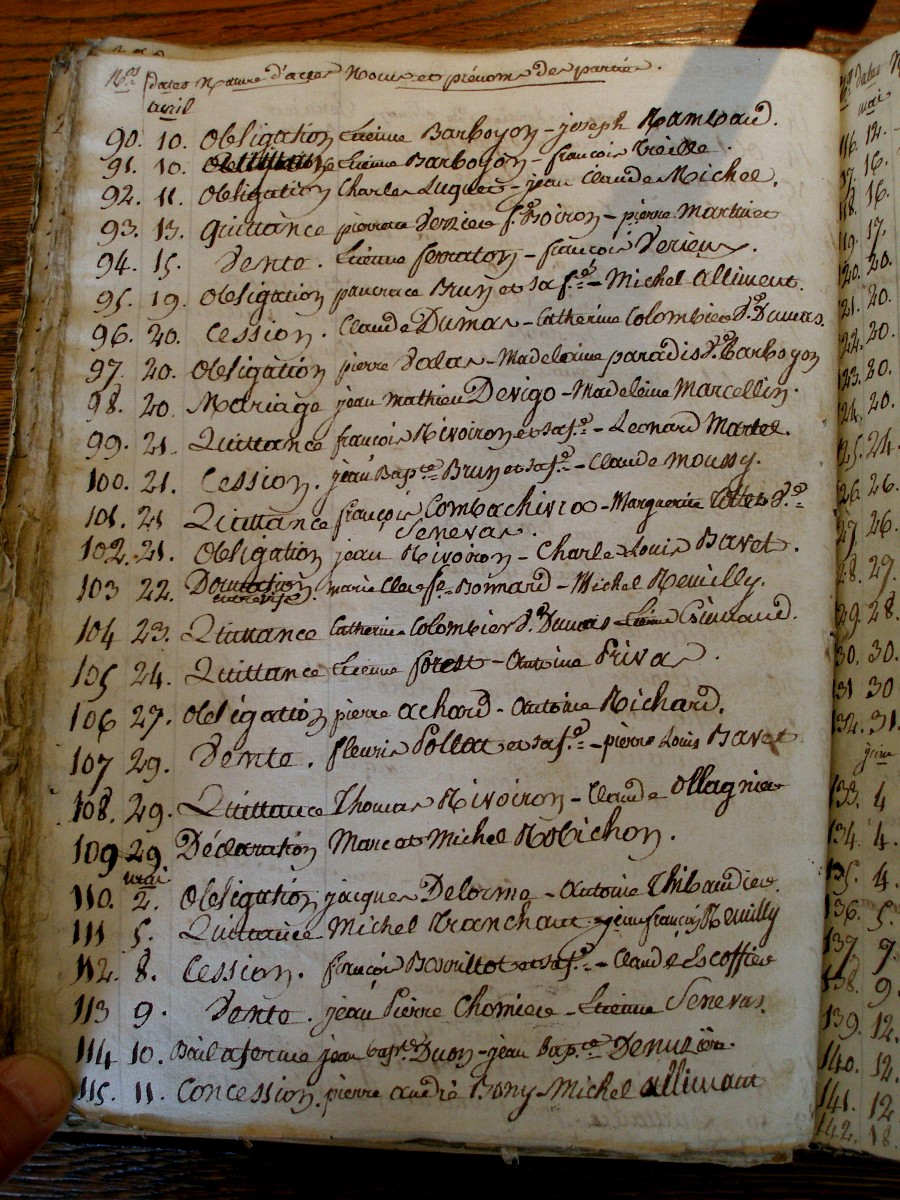 Nos dates Nature d'actes Noms et prénoms des parties.
avril
90. 10. Obligation Etienne Barboyon - joseph Rambaud.
91. 10. Etienne Barboyon - françois Vieille.
92. 11. Obligation Charles Luquet - jean Claude Michel.
93. 13. Quittance pierrette Verzier fe Boiron - pierre Martinet
94. 15. Vente. Etienne ferraton - françois Verieux.
95. 19. Obligation pancrace Brun et sa fe - Michel Alliment.
96. 20. Cession. Claude Dumas - Catherine Colombier Ve Dumas.
97. 20. Obligation pierre Valas - Madeleine paradis Ve Barboyon
98. 20. Mariage jean Mathieu Devigo - Madeleine Marcellin.
99. 21. Quittance françois Rivoiron et sa fe - Leonard Martel.
100. 21. Cession. jean Bapte Brun et sa fe - Claude Moussy.
101. 21 Quittance françois Combachivio - Marguerite Ve
Senevas.
102. 21. Obligation jean Rivoiron - Charle Louis Bavet.
103 22. Donnation marie Cler fe Bonnard - Michel Reuilly.
entre vifs.
104 23. Quittance Catherine Colombier Ve Dumas - Etienne
105 24. Quittance Etienne forest - Antoine Privas.
106 27. Obligation pierre achard - Antoine Richard.
107 29. Vente. fleuris Pollet et sa fe - pierre Louis Bavet
108. 29. Quittance Thomas Rivoiron - Claude Ollagnier
109 29 Déclaration Marc et Michel Robichon.
mai
110. 2. Obligation jacques Delorme - Antoine Thibaudier.
111 5. Quittance Michel Tranchant - jean françois Reuilly
112. 8. Cession. françois et sa fe - Claude Escoffier
113 9. Vente. jean Pierre Chomier - Etienne Senevas.
114 10. Bail a ferme jean bapte Duon - jean Bapte
115. 11. Concession. pierre andré Bony - Michel allimant
dates
mai
116. 12.
117. 16.
118. 16.
119. 17.
120. 20.
121. 20.
122. 20.
123. 20.
124. 20.
125. 24.
126. 26.
127. 26.
128. 27.
129. 28.
130. 30.
131 30
132. 31.
juin
133. 4
134. 4.
135. 4.
136. 5.
137. 9.
138. 9.
139. 12.
140. 12.
141. 12
142. 18.